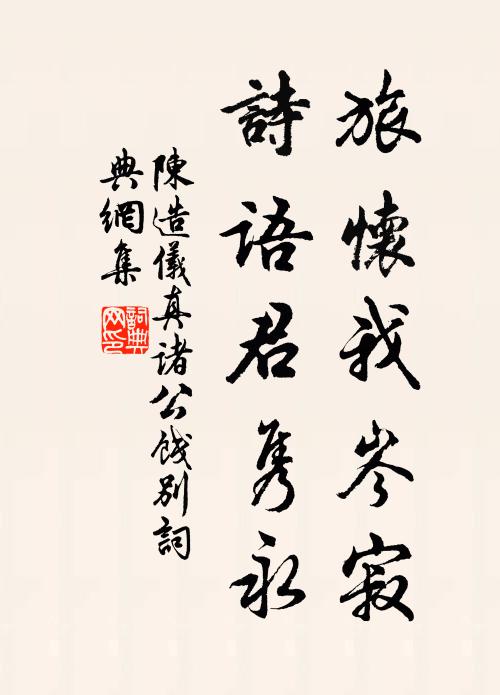 旅懷我岑寂
詩語君隽永
陳造儀真諸公餞別詞
典網集
詞典
网印